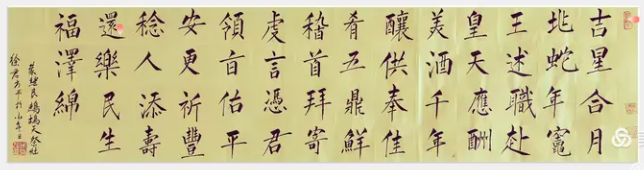 吉星合月
北蛇年竈
王述職赴
皇天應酬
美酒千年
釀供奉佳
肴五鼎鮮
稽首拜寄
虔言憑君
領盲佑平
安更祈豐
稔人添壽
還樂民生
福澤綿